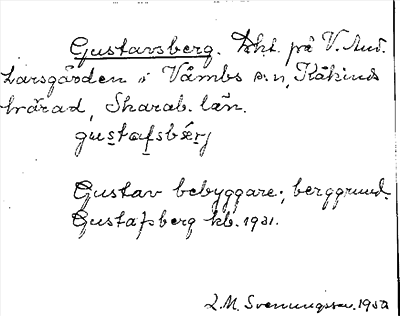 Gustavsberg. Lht. på V. And.
Larsgården i Våmbs sn, Kåkinds
härad, Skarab. län.
gustafsbærj
Gustav bebyggare; berggrund.
Gustafsberg kb. 1931.
L.M. Svennungsson. 1950